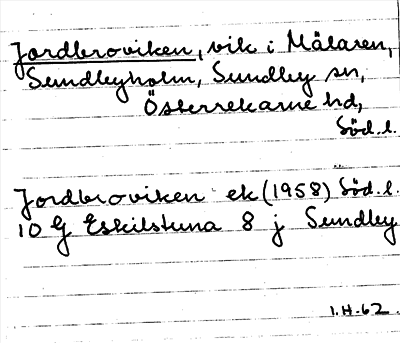 Jordbroviken, vik i Mälaren,
Sundbyholm, Sundby sn,
Österrekarne hd,
Söd.l.
Jordbroviken ek (1958) Söd.l.
10 G Eskilstuna 8 j Sundby
1.H.62.